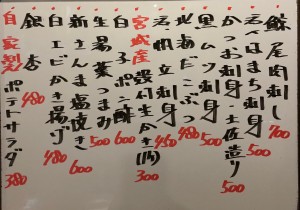 鯨尾肉刺し 700
えぺはまち刺身 500
かつおの刺身・土佐造り 500
黒ムツ刺身 500
北海だこぶつ 480
帆立刺身 450
宮城産 殻付生かき(1ヶ) 300
白子ポン酢 600
生湯葉つまみ 500
新さんま塩焼き
白エビかき揚げ 480
銀杏 480
自家製ポテトサラダ 380